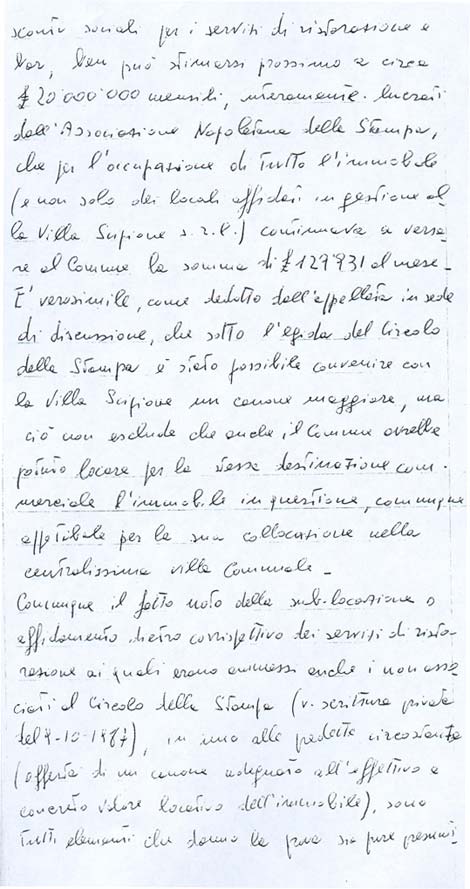 sconti sociali per i servizi di ristorazione e
bar, ben può stimarsi prossimo a circa
£ 20'000'000 mensili, interamente lucrati
dall'Associazione Napoletana della Stampa,
che per l'occupazione di tutto l'immobile
(e non solo dei locali affidati in gestione al
la Villa Scipione s.r.l.) continuava a versa
re al Comune la somma di £ 129'931 al mese-
E' verosimile, come dedotto dall'appellata in sede
di discussione, che sotto l'egida del Circolo
della Stampa è stato possibile convenire con
la Villa Scipione un canone maggiore, ma
ciò non esclude che anche il Comune avrebbe
potuto locare per la stessa destinazione com-
merciale l'immobile in questione, comunque
appetibile per la sua collocazione nella
centralissima villa Comunale-
Comunque il fatto noto della sub-locazione o
affidamento dietro corrispettivo dei servizi di risto-
razione ai quali erano ammessi anche i non asso
ciati al Circolo della Stampa (v. scrittura privata
del 9-10-1987), in uno alle predette circostanze
(offerta di un canone adeguato all'effettivo e
concreto valore locativo dell'immobile), sono
tutti elementi che danno la prova sia pure presunti-